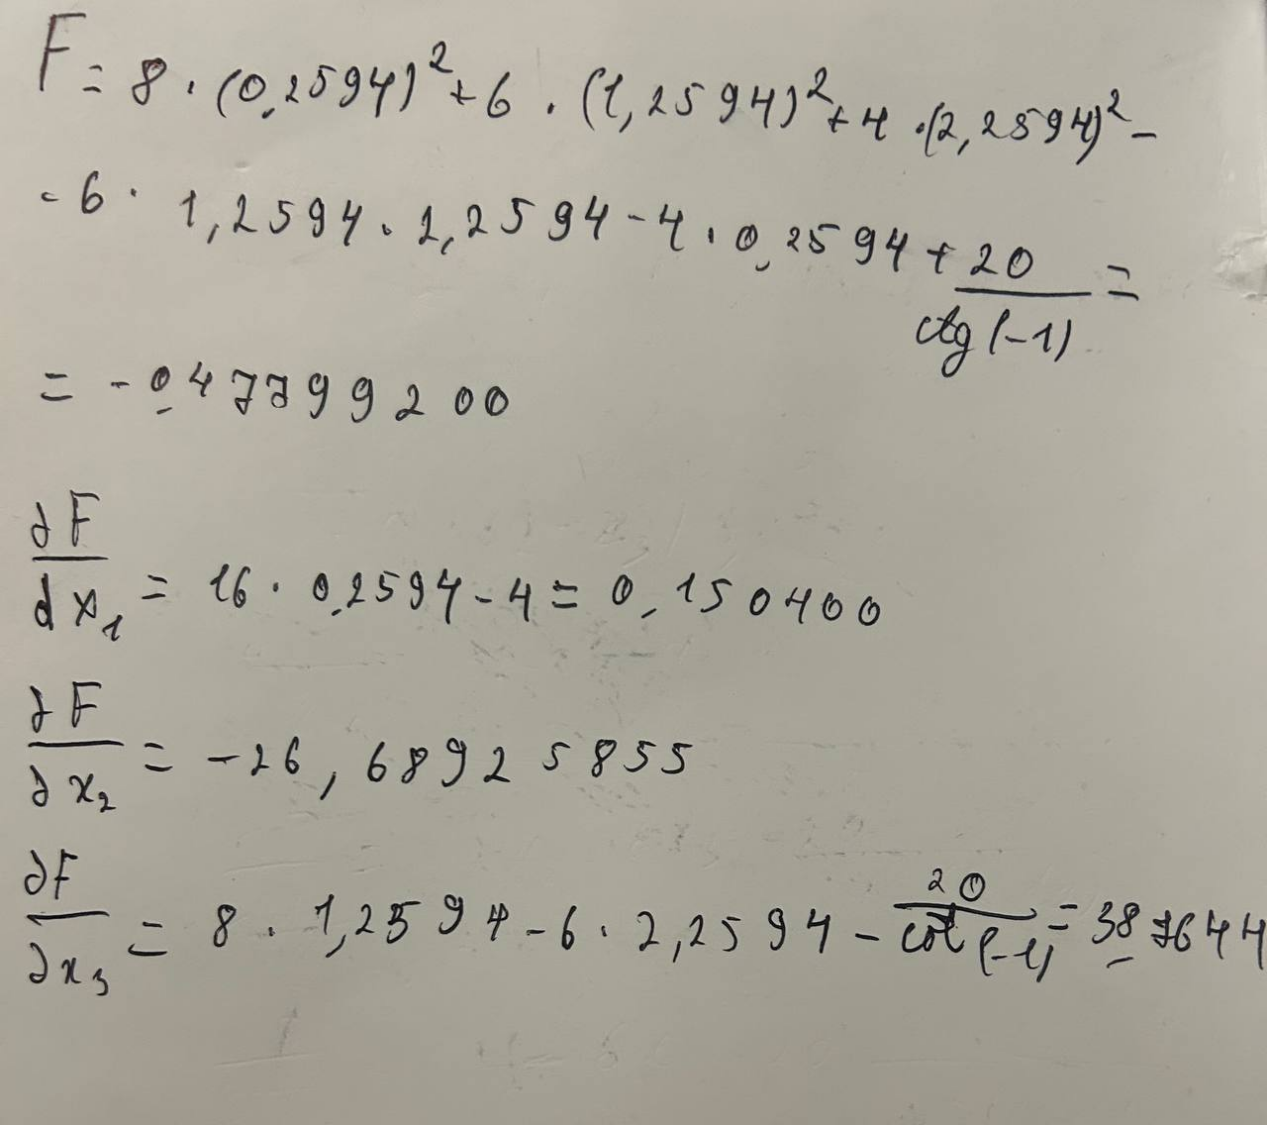 F = 8 · (0,2594)² + 6 · (1,2594)² + 4 · (2,2594)² -
- 6 · 1,2594 · 2,2594 - 4 · 0,2594 + 20/ctg(-1) =
= - 0,47799200
∂F/dx₁ = 16 · 0,2594 - 4 = 0,150400
∂F/∂x₂ = -26,68925855
∂F/∂x₃ = 8 · 1,2594 - 6 · 2,2594 - 20/cot(-1) = 38,7644